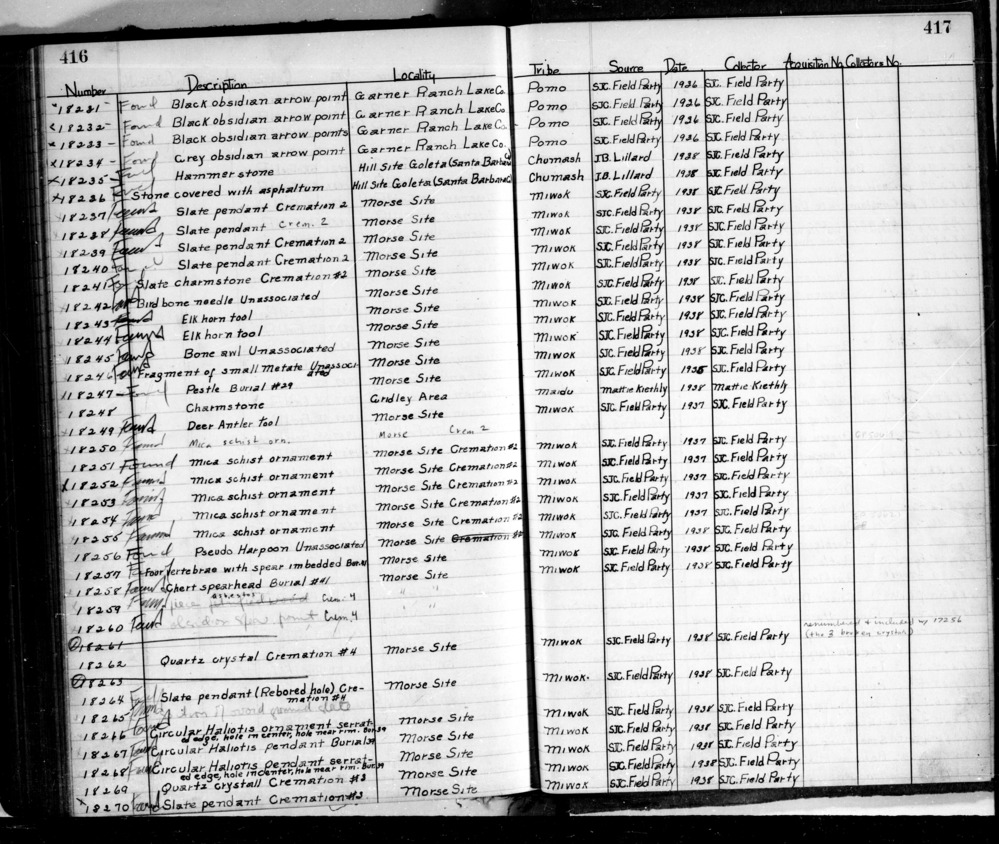 416
417
Number Description Locality Tribe Source Date Collector Acquisition No. Collectors No.
18231 Found Black obsidian arrow point Garner Ranch Lake Co. Pomo SJC. Field Party 1936 SJC. Field Party
18232 Found Black obsidian arrow point Garner Ranch Lake Co. Pomo SJC. Field Party 1936 SJC. Field Party
18233 Found Black obsidian arrow points Garner Ranch Lake Co. Pomo SJC. Field Party 1936 SJC. Field Party
18234 Found Grey obsidian arrow point Garner Ranch Lake Co. Pomo SJC. Field Party 1936 SJC. Field Party
18235 Found Hammerstone Hill Site Goleta (Santa Barbara) Chumash J.B. Lillard 1938 SJC. Field Party
18236 Stone covered with asphaltum Hill Site Goleta (Santa Barbara) Chumash J.B. Lillard 1938 SJC. Field Party
18237 Found Slate pendant Cremation 2 Morse Site Miwok SJC. Field Party 1938 SJC. Field Party
18238 Found Slate pendant Crem. 2 Morse Site Miwok SJC. Field Party 1938 SJC. Field Party
18239 Found Slate pendant Cremation 2 Morse Site Miwok SJC. Field Party 1938 SJC. Field Party
18240 Found Slate pendant Cremation 2 Morse Site Miwok SJC. Field Party 1938 SJC. Field Party
18241 Slate charmstone Cremation #2 Morse Site Miwok SJC. Field Party 1938 SJC. Field Party
18242 Bird bone needle Unassociated Morse Site Miwok SJC. Field Party 1938 SJC. Field Party
18243 Found Elk horn tool Morse Site Miwok SJC. Field Party 1938 SJC. Field Party
18244 Found Elk horn tool Morse Site Miwok SJC. Field Party 1938 SJC. Field Party
18245 Found Bone awl Unassociated Morse Site Miwok SJC. Field Party 1938 SJC. Field Party
18246 Found Fragment of small metate Unassoci-
ated Morse Site Miwok SJC. Field Party 1938 SJC. Field Party
18247 Found Pestle Burial #29 Morse Site Miwok SJC. Field Party SJC. Field Party
18248 Charmstone Gridley Area Maidu Mattie Kiethly 1938 Mattie Kiethly
18249 Found Deer Antler Tool Morse Site Miwok SJC. Field Party 1937 SJC. Field Party
18250 Found Mica schist orn. Morse Crem 2
18251 Found Mica schist ornament Morse Site Cremation #2 Miwok SJC. Field Party 1937 SJC. Field Party
18252 Found Mica schist ornament Morse Site Cremation #2 Miwok SJC. Field Party 1937 SJC. Field Party
18253 Found Mica schist ornament Morse Site Cremation #2 Miwok SJC. Field Party 1937 SJC. Field Party
18254 Found Mica schist ornament Morse Site Cremation #2 Miwok SJC. Field Party 1937 SJC. Field Party
18255 Found Mica schist ornament Morse Site Cremation #2 Miwok SJC. Field Party 1937 SJC. Field Party
18256 Found Pseudo Harpoon Unassociated Morse Site Cremation #2 Miwok SJC. Field Party 1938 SJC. Field Party
18257 Four vertebrae with spear imbedded Morse Site Miwok SJC. Field Party 1938 SJC. Field Party
18258 Found Chert spearhead Burial #41 Morse Site Miwok SJC. Field Party 1938 SJC. Field Party
18259 Found asbestos Crem. 4 " "
18260 Found obsidian point Crem. 4 " "
18261
renumbered + included w/ 17256
(the 3 broken crystals)
18262 Quartz crystal Cremation #4 Morse Site Miwok SJC. Field Party 1938 SJC. Field Party
18263
18264 Slate pendant (Rebored hole) Cre-
mation #4 Morse Site Miwok. SJC. Field Party 1938 SJC. Field Party
18265 Found
18266 Found Circular Haliotis ornament serrat-
ed edge, hole in center, hole near rim. Morse Site Miwok SJC. Field Party 1938 SJC. Field Party
18267 Found Circular Haliotis pendant Burial Morse Site Miwok SJC. Field Party 1938 SJC. Field Party
18268 Circular Haliotis Pendant serrat-
ed edge, hole in center, hole near rim. Morse Site Miwok SJC. Field Party 1938 SJC. Field Party
18269 Quartz crystall Cremation #3 Morse Site Miwok SJC. Field Party 1938 SJC. Field Party
18270 Found Slate pendant Cremation #3 Morse Site Miwok SJC. Field Party 1938 SJC. Field Party